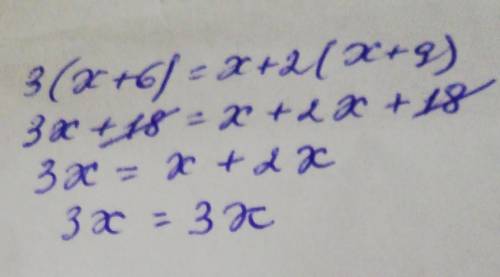 3(x+6) = x+2(x+9)
3x+18 = x+2x+18
3x = x+2x
3x = 3x